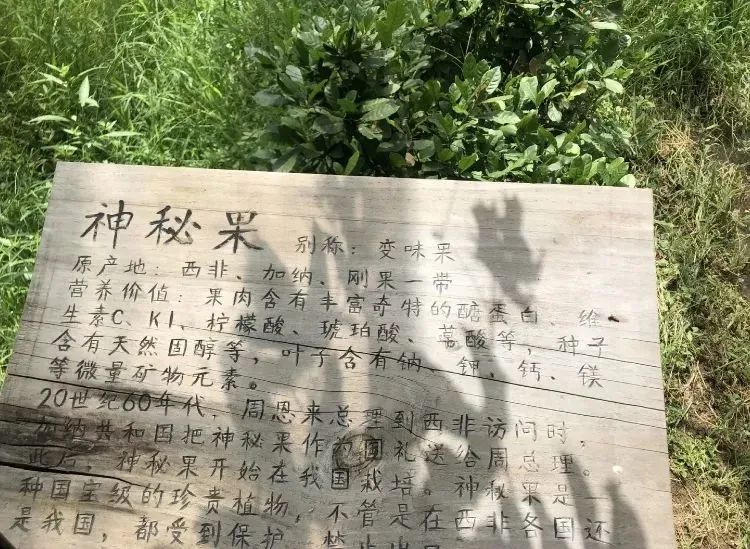 神秘果 别称：变味果
原产地：西非、加纳、刚果一带
营养价值：果肉含有丰富奇特的醣蛋白、维
生素C、K1、柠檬酸、琥珀酸、草酸等，种子
含有天然固醇等，叶子含有钠、钾、钙、镁
等微量矿物元素。
20世纪60年代，周恩来总理到西非访问时，
加纳共和国把神秘果作为国礼送给周总理。
此后，神秘果开始在我国栽培。神秘果是一
种国宝级的珍贵植物，不管是在西非各国还
是我国，都受到保护，禁止出口